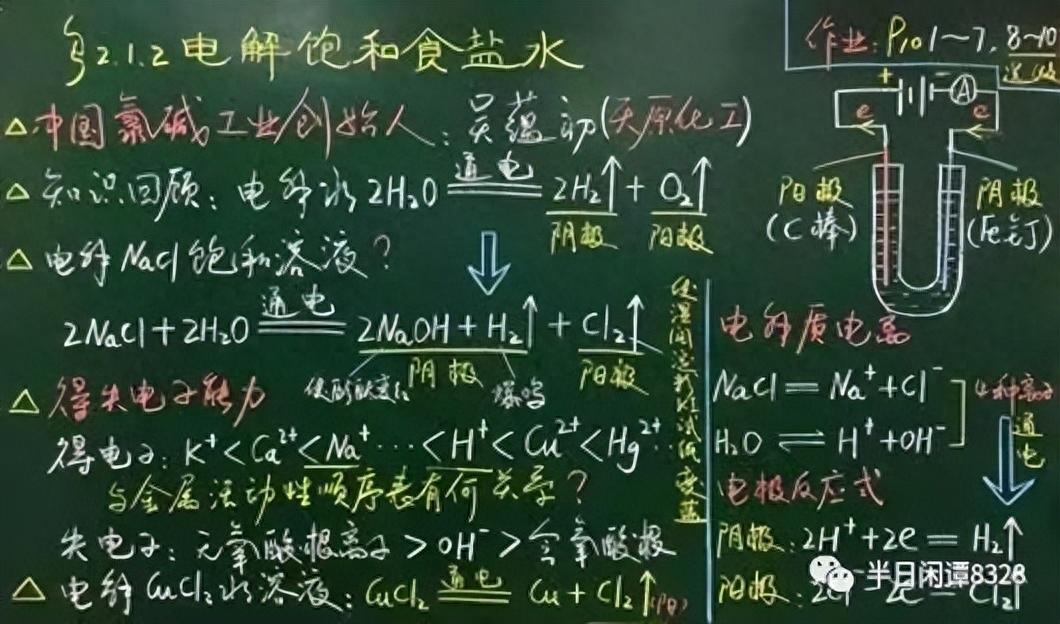 §2.1.2 电解饱和食盐水
作业: P10 1~7, 8~10
△ 中国氯碱工业创始人: 吴蕴初(天原化工)
△ 知识回顾: 电解水 2H₂O ══通电══ 2H₂↑ + O₂↑
阴极 阳极
△ 电解NaCl饱和溶液?
2NaCl + 2H₂O ══通电══ 2NaOH + H₂↑ + Cl₂↑
使酚酞变红 阴极 爆鸣 阳极
使湿润淀粉KI试纸变蓝
△ 得失电子能力
得电子: K⁺<Ca²⁺<Na⁺…<H⁺<Cu²⁺<Hg²⁺
与金属活动性顺序表有何关系?
失电子: 无氧酸根离子>OH⁻>含氧酸根
△ 电解CuCl₂水溶液: CuCl₂ ══通电══ Cu + Cl₂↑(阳)
+ - A
e e
阳极 (C棒)
阴极
电解质电离
NaCl = Na⁺ + Cl⁻
H₂O ⇌ H⁺ + OH⁻
4种离子
通电
电极反应式
阴极: 2H⁺ + 2e = H₂↑
阳极: Cl₂↑
半日闲谭8328